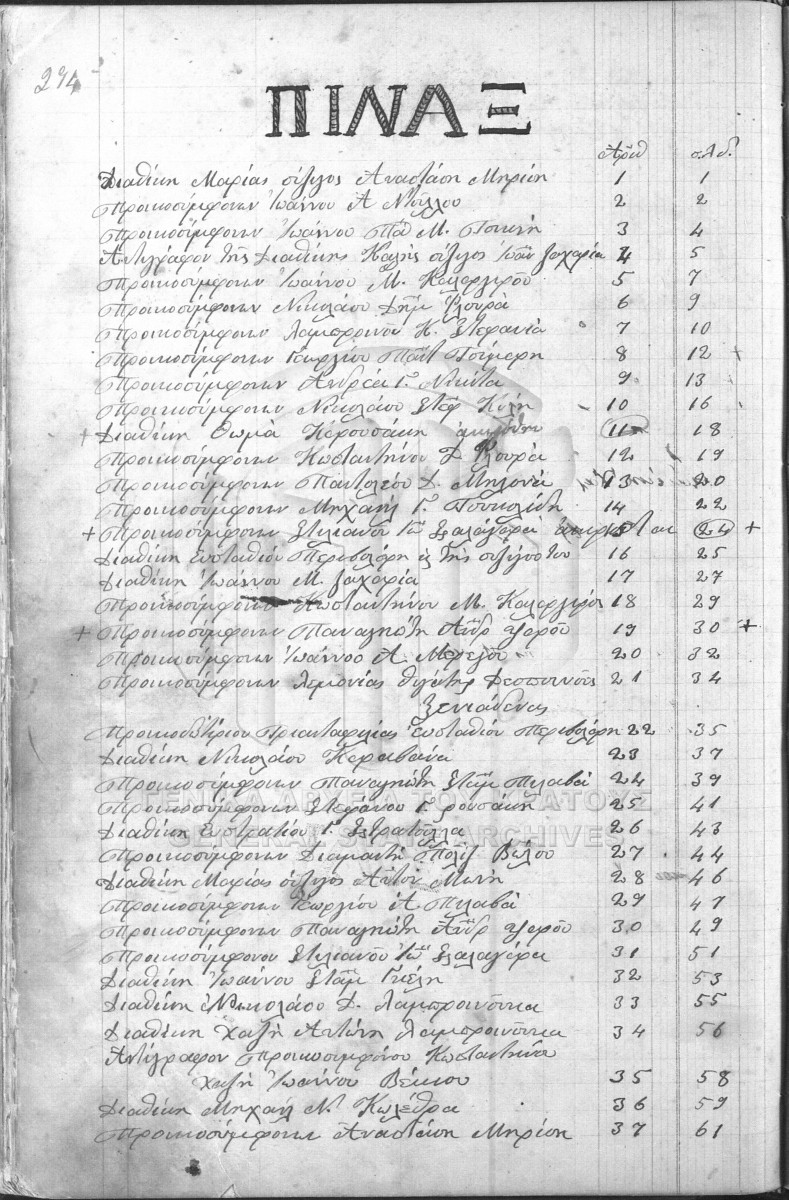 274
ΠΙΝΑΞ
Ἀριθ σελδ.
Διαθήκη Μαρίας σύζυγος Ἀναστάση Μηρίση 1 1
Προικοσύμφονον Ἰωάννου Α 2 2
Προικοσύμφονον Ἰωάννου Πα Μ. 3 4
Ἀντίγραφον τῆς Διαθήκης Καλῆς σύζυγος Ἰωάν Ζαχαρία 4 5
Προικοσύμφονον Ἰωάννου Μ. Καλαργυροῦ 5 7
Προικοσύμφονον Νικολάου Δημ Φλουρᾶ 6 9
Προικοσύμφονον Λαμπρινοῦ Κ. Στεφανία 7 10
Προικοσύμφονον Γεωργίου Παντ 8 12 +
Προικοσύμφονον Ἀνδρέα Γ. Νικήτα 9 13
Προικοσύμφονον Νικολάου Στεφ 10 16
+ Διαθήκη Θωμᾶ Καρουσάκη 11 18
Προικοσύμφονον Κωσταντήνου Δ Φλουρᾶ 12 19
Προικοσύμφονον Πανταλεου Δ. Μηλονᾶ 13 20
Προικοσύμφονον Μηχαήλ Γ. 14 22
+ Προικοσύμφονον Στυλιανοῦ Ἰω Σαλαγάρα 24 +
Διαθήκη Ευσταθίου Περιβολάρη κ τῆς συζύγου του 16 25
Διαθήκη Ἰωάννου Μ. Ζαχαρία 17 27
Προικοσύμφονον Κωσταντήνου Μ. Καλαργυροῦ 18 29
+ Προικοσύμφονον Παναγιώτη Ἀνδρ 19 30 +
Προικοσύμφονον Ἰωάννου Α. 20 32
Προικοσύμφονον Λεμονίας θυγάτης Δεσποινούς 21 34
Ξενιάδενας
Προικοδωτήριον Τριανταφυλίας Εὐσταθίου Περιβολάρη 22 35
Διαθήκη Νικολάου Καραβάνα 23 37
Προικοσύμφονον Παναγιώτη Σταμ Πιλαβᾶ 24 39
Προικοσύμφονον Στεφάνου Γ. Ρουσάκη 25 41
Διαθήκη Ευστρατίου Γ. 26 43
Προικοσύμφονον Διαμαντῆ Βέλου 27 44
Διαθήκη Μαρίας σύζυγος Ἀντων 28 46
Προικοσύμφονον Γεωργίου Α Πιλαβᾶ 29 47
Προικοσύμφονον Παναγιώτη Ἀνδρ 30 49
Προικοσύμφονου Στιλιανοῦ Ἰω Σαλαγάρα 31 51
Διαθήκη Ἰωάννου Σταμ 32 53
Διαθήκη Νικολάου Δ. Λαμπρινούκα 33 55
Διαθήκη Χατζῆ Ἀντώνη Λαμπρινούκα 34 56
Ἀντίγραφον Προικοσυμφόνου Κωσταντήνου
Χατζῆ Ἰωάννου Βέκιου 35 58
Διαθήκη Μηχαήλ Ν. Κωλέθρα 36 59
Προικοσύμφονον Ἀναστάση Μηρίση 37 61
ΓΕΝΙΚΑ ΑΡΧΕΙΑ ΤΟΥ ΚΡΑΤΟΥΣ
GENERAL STATE ARCHIVES